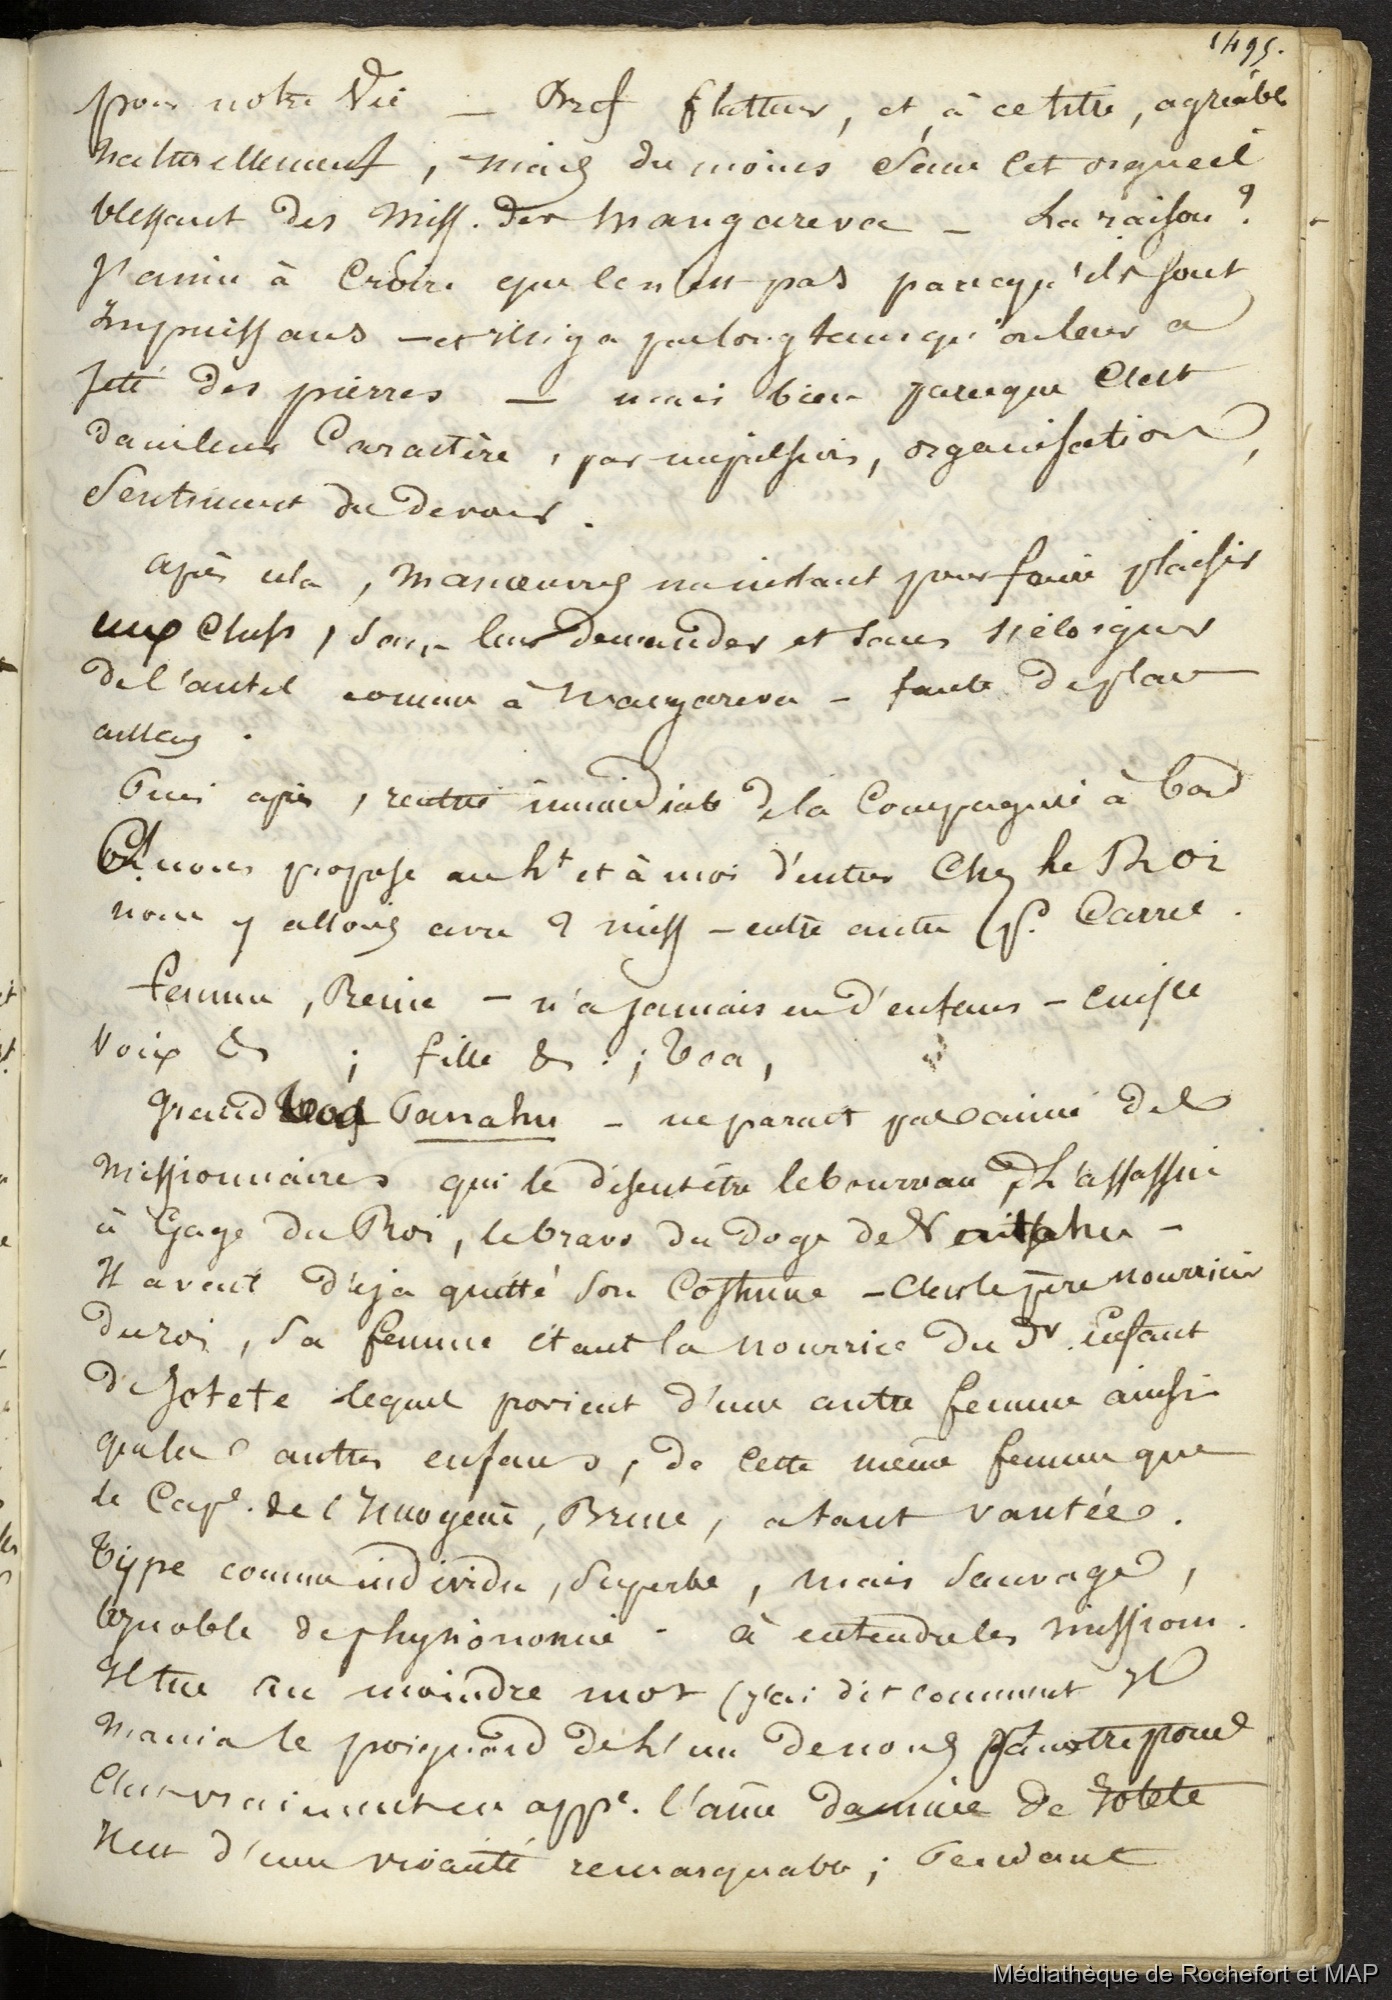 1495.
pour notre Vie — Bref flatteur, et, à ce titre, agréable
naturellement, mais du moins sans cet orgueil
blessant des Miss. des Mangareva — La raison ?
J'aime à croire que ce n'est pas parcequ'ils sont
Impuissans — et il n'y a pas longtems qu'on leur a
jeté des pierres — mais bien parceque c'est
dans leur Caractère, par impulsion, organisation,
Sentiment du devoir.
après cela, manœuvres maintenant pour faire plaisir
aux Chefs, sans leur demander et sans s'éloigner
de l'autel comme à Mangareva — faute de place
assez.
Puis après, rentrée immédiate de la Compagnie à bord
nous propose au Lt et à moi d'entrer Chez le Roi
nous y allons avec 2 miss — entre autre (p. Carret.
femme, Reine — n'a jamais eu d'enfans — cuisse
Voix &a ; fille &a ; Vea,
grand Pananahu — ne parait pas aimé des
Missionnaires qui le disent être le bourreau, L'assassin
à Gage du Roi, le bravo du doge de Vaitahu —
Il avait déjà quitté son Costume — C'est le père nourricier
du roi, sa femme étant la nourrice du Dr. Enfant
de Jotete lequel provient d'une autre femme ainsi
que les autres enfans, de cette même femme que
le Cape. de l'Innogene, Brue, a tant vantée.
Type comme individu, superbe, mais sauvage,
Ignoble de physionomie — à entendre les mission.
Il tue au moindre mot (j'ai dit comment Il
mania le poignard de L'un de nous
C'est vraiment en appe. l'âme damnée de Iotete
Il est d'une vivacité remarquable ; Pendant
Médiathèque de Rochefort et MAP